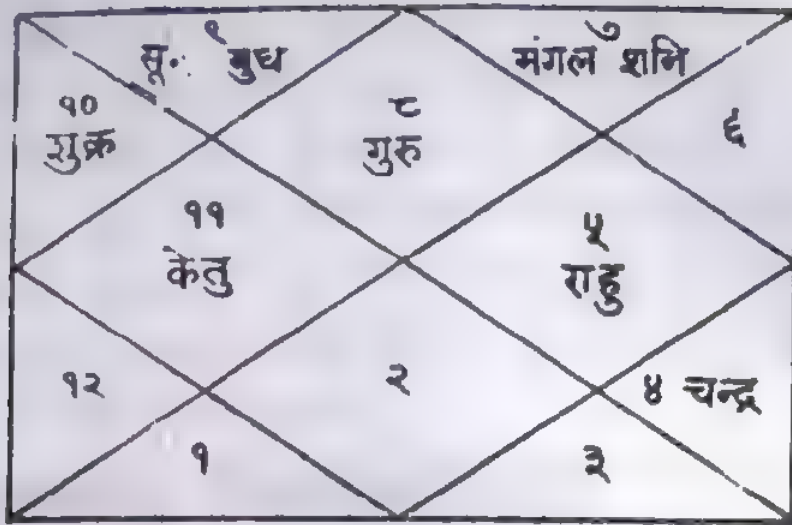 ९
सू. बुध
७
मंगल शनि
१०
शुक्र
८
गुरु
६
११
केतु
५
राहु
१२
२
४ चन्द्र
१
३